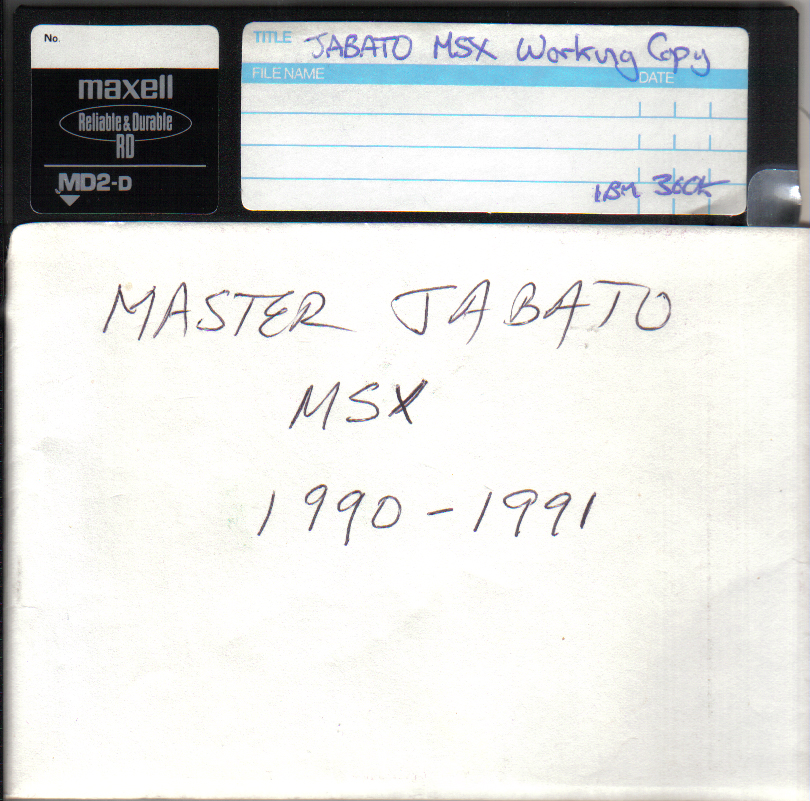 No.
maxell
Reliable & Durable
RD
MD2-D
TITLE JABATO MSX Working Copy
FILE NAME DATE
IBM 360K
MASTER JABATO
MSX
1990-1991